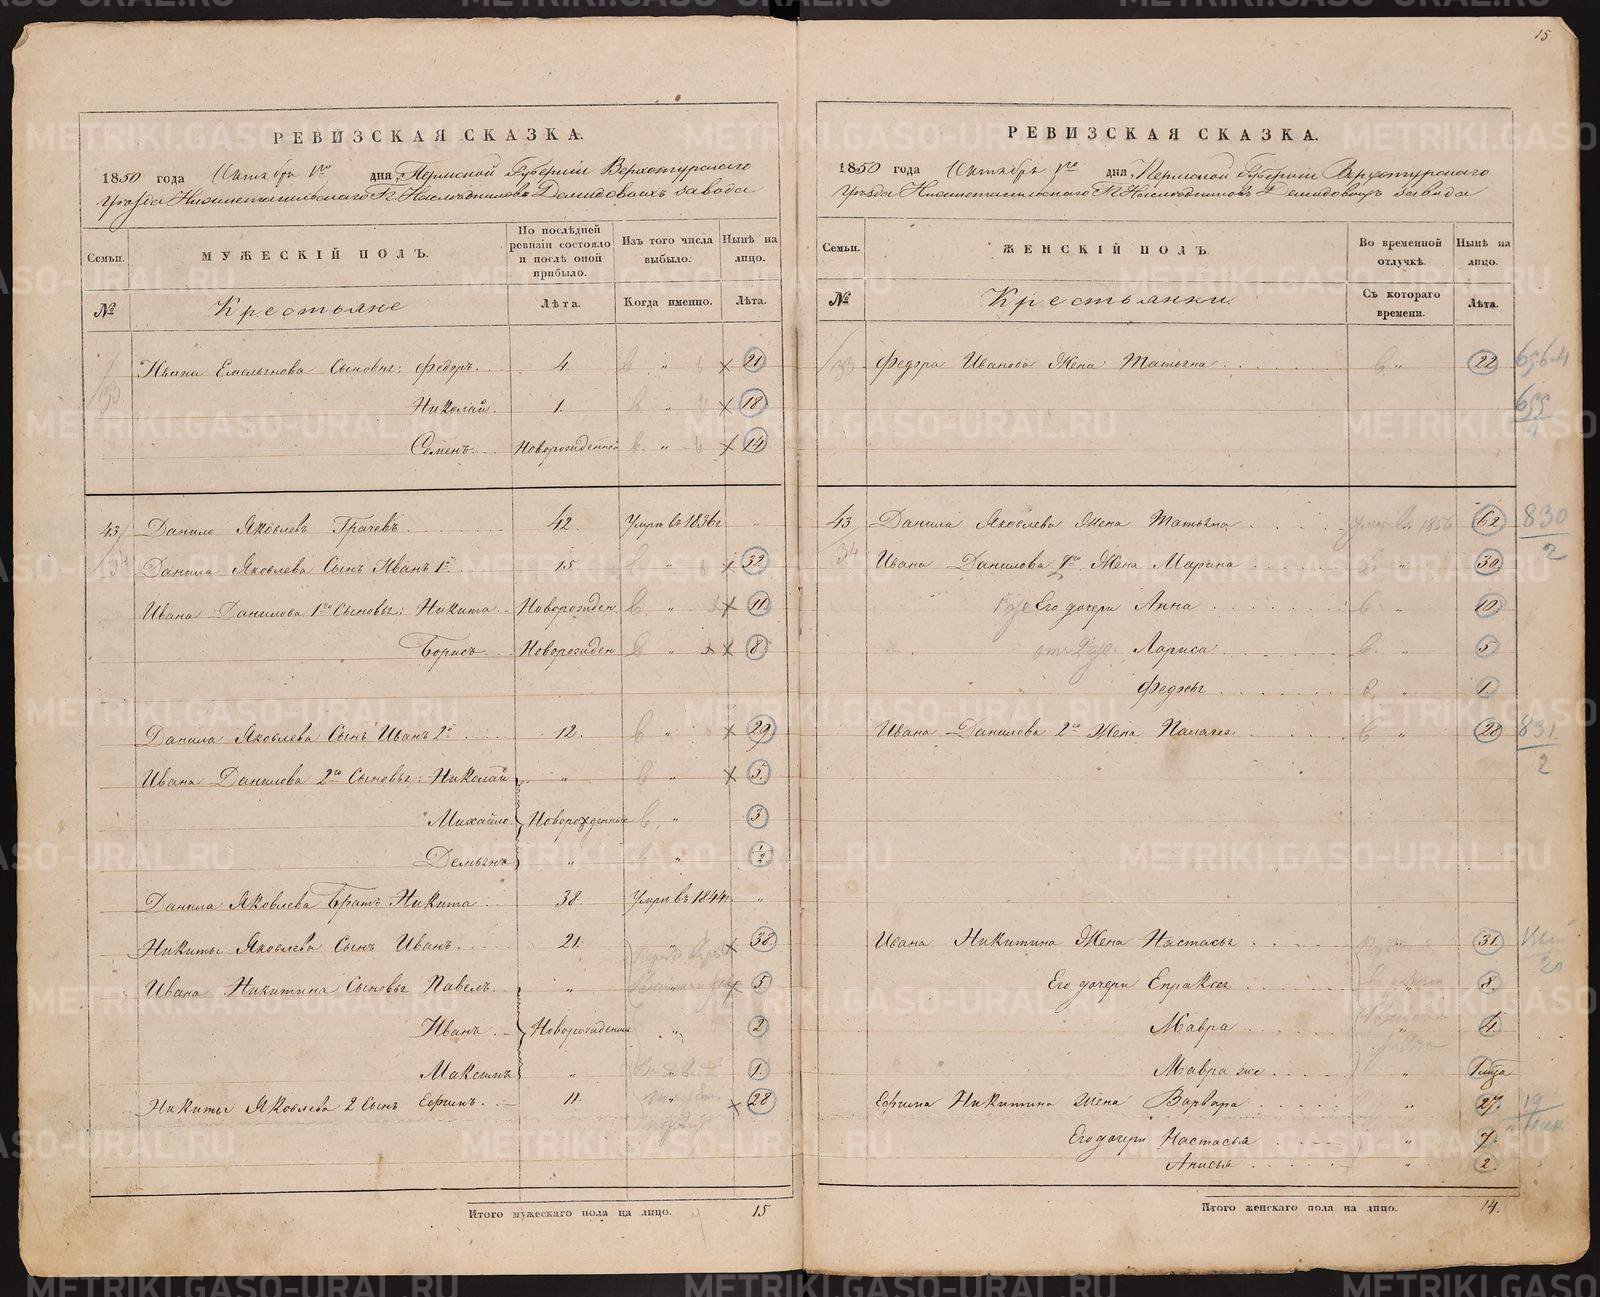 15
РЕВИЗСКАЯ СКАЗКА.
1850 года Октября 1го дня Пермской Губерніи Верхотурскаго
Уѣзда Нижнетагильскаго Гг. Наслѣдниковъ Демидовыхъ завода
Семьи. МУЖЕСКІЙ ПОЛЪ. По послѣдней ревизіи состояло и послѣ оной прибыло. Изъ того числа выбыло. Нынѣ на лицо.
№ Крестьяне Лѣта. Когда именно. Лѣта.
33 Ивана Емельянова Сыновья: Федоръ 4. 21
Николай 1. 18
Семенъ Новорожденной 14
43/34 Данило Яковлевъ Грачевъ 42. Умръ въ 1836 г „
Данила Яковлева Сынъ Иванъ 1й 15. 32
Ивана Данилова 1го Сыновья: Никита Новорожден. 11
Борисъ Новорожден 8
Данила Яковлева Сынъ Иванъ 2й 12. 29
Ивана Данилова 2го Сыновья: Николай „ 5.
Михайло Новорожденные 3
Демьянъ „ 1/2
Данила Яковлева Братъ Никита 38. Умръ въ 1844 г. „
Никиты Яковлева Сынъ Иванъ 21. 38.
Ивана Никитина Сыновья Павелъ „ 5
Иванъ Новорожденны 2
Максимъ „ 1.
Никиты Яковлева 2 Сынъ Ефимъ 11. 28
Итого мужескаго пола на лицо. 15
РЕВИЗСКАЯ СКАЗКА.
1850 года Октября 1го дня Пермской Губерніи Верхотурскаго
Уѣзда Нижнетагильскаго Гг. Наслѣдниковъ Демидовыхъ завода
Семьи. ЖЕНСКІЙ ПОЛЪ. Во временной отлучкѣ. Нынѣ на лицо.
№ Крестьянки Съ котораго времени. Лѣта.
33 Федора Иванова Жена Татьяна „ 22 656-4
655/4
43/34 Данила Яковлева Жена Татьяна 1856 62 830/2
Ивана Данилова 1го Жена Марина „ 30
Его дочери Анна 10
Лариса „ 5
Федосья „ 1.
Ивана Данилова 2го Жена Палагея „ 28 831/2
Ивана Никитина Жена Настасья 31.
Его дочери Епраксея „ 8.
Мавра „ 4.
Мавра же „ 1/2 года
Ефима Никитина Жена Варвара „ 27. 19
Его дочери Настасья „ 7.
Анисья „ 2.
Итого женскаго пола на лицо. 14.
METRIKI.GASO-URAL.RU